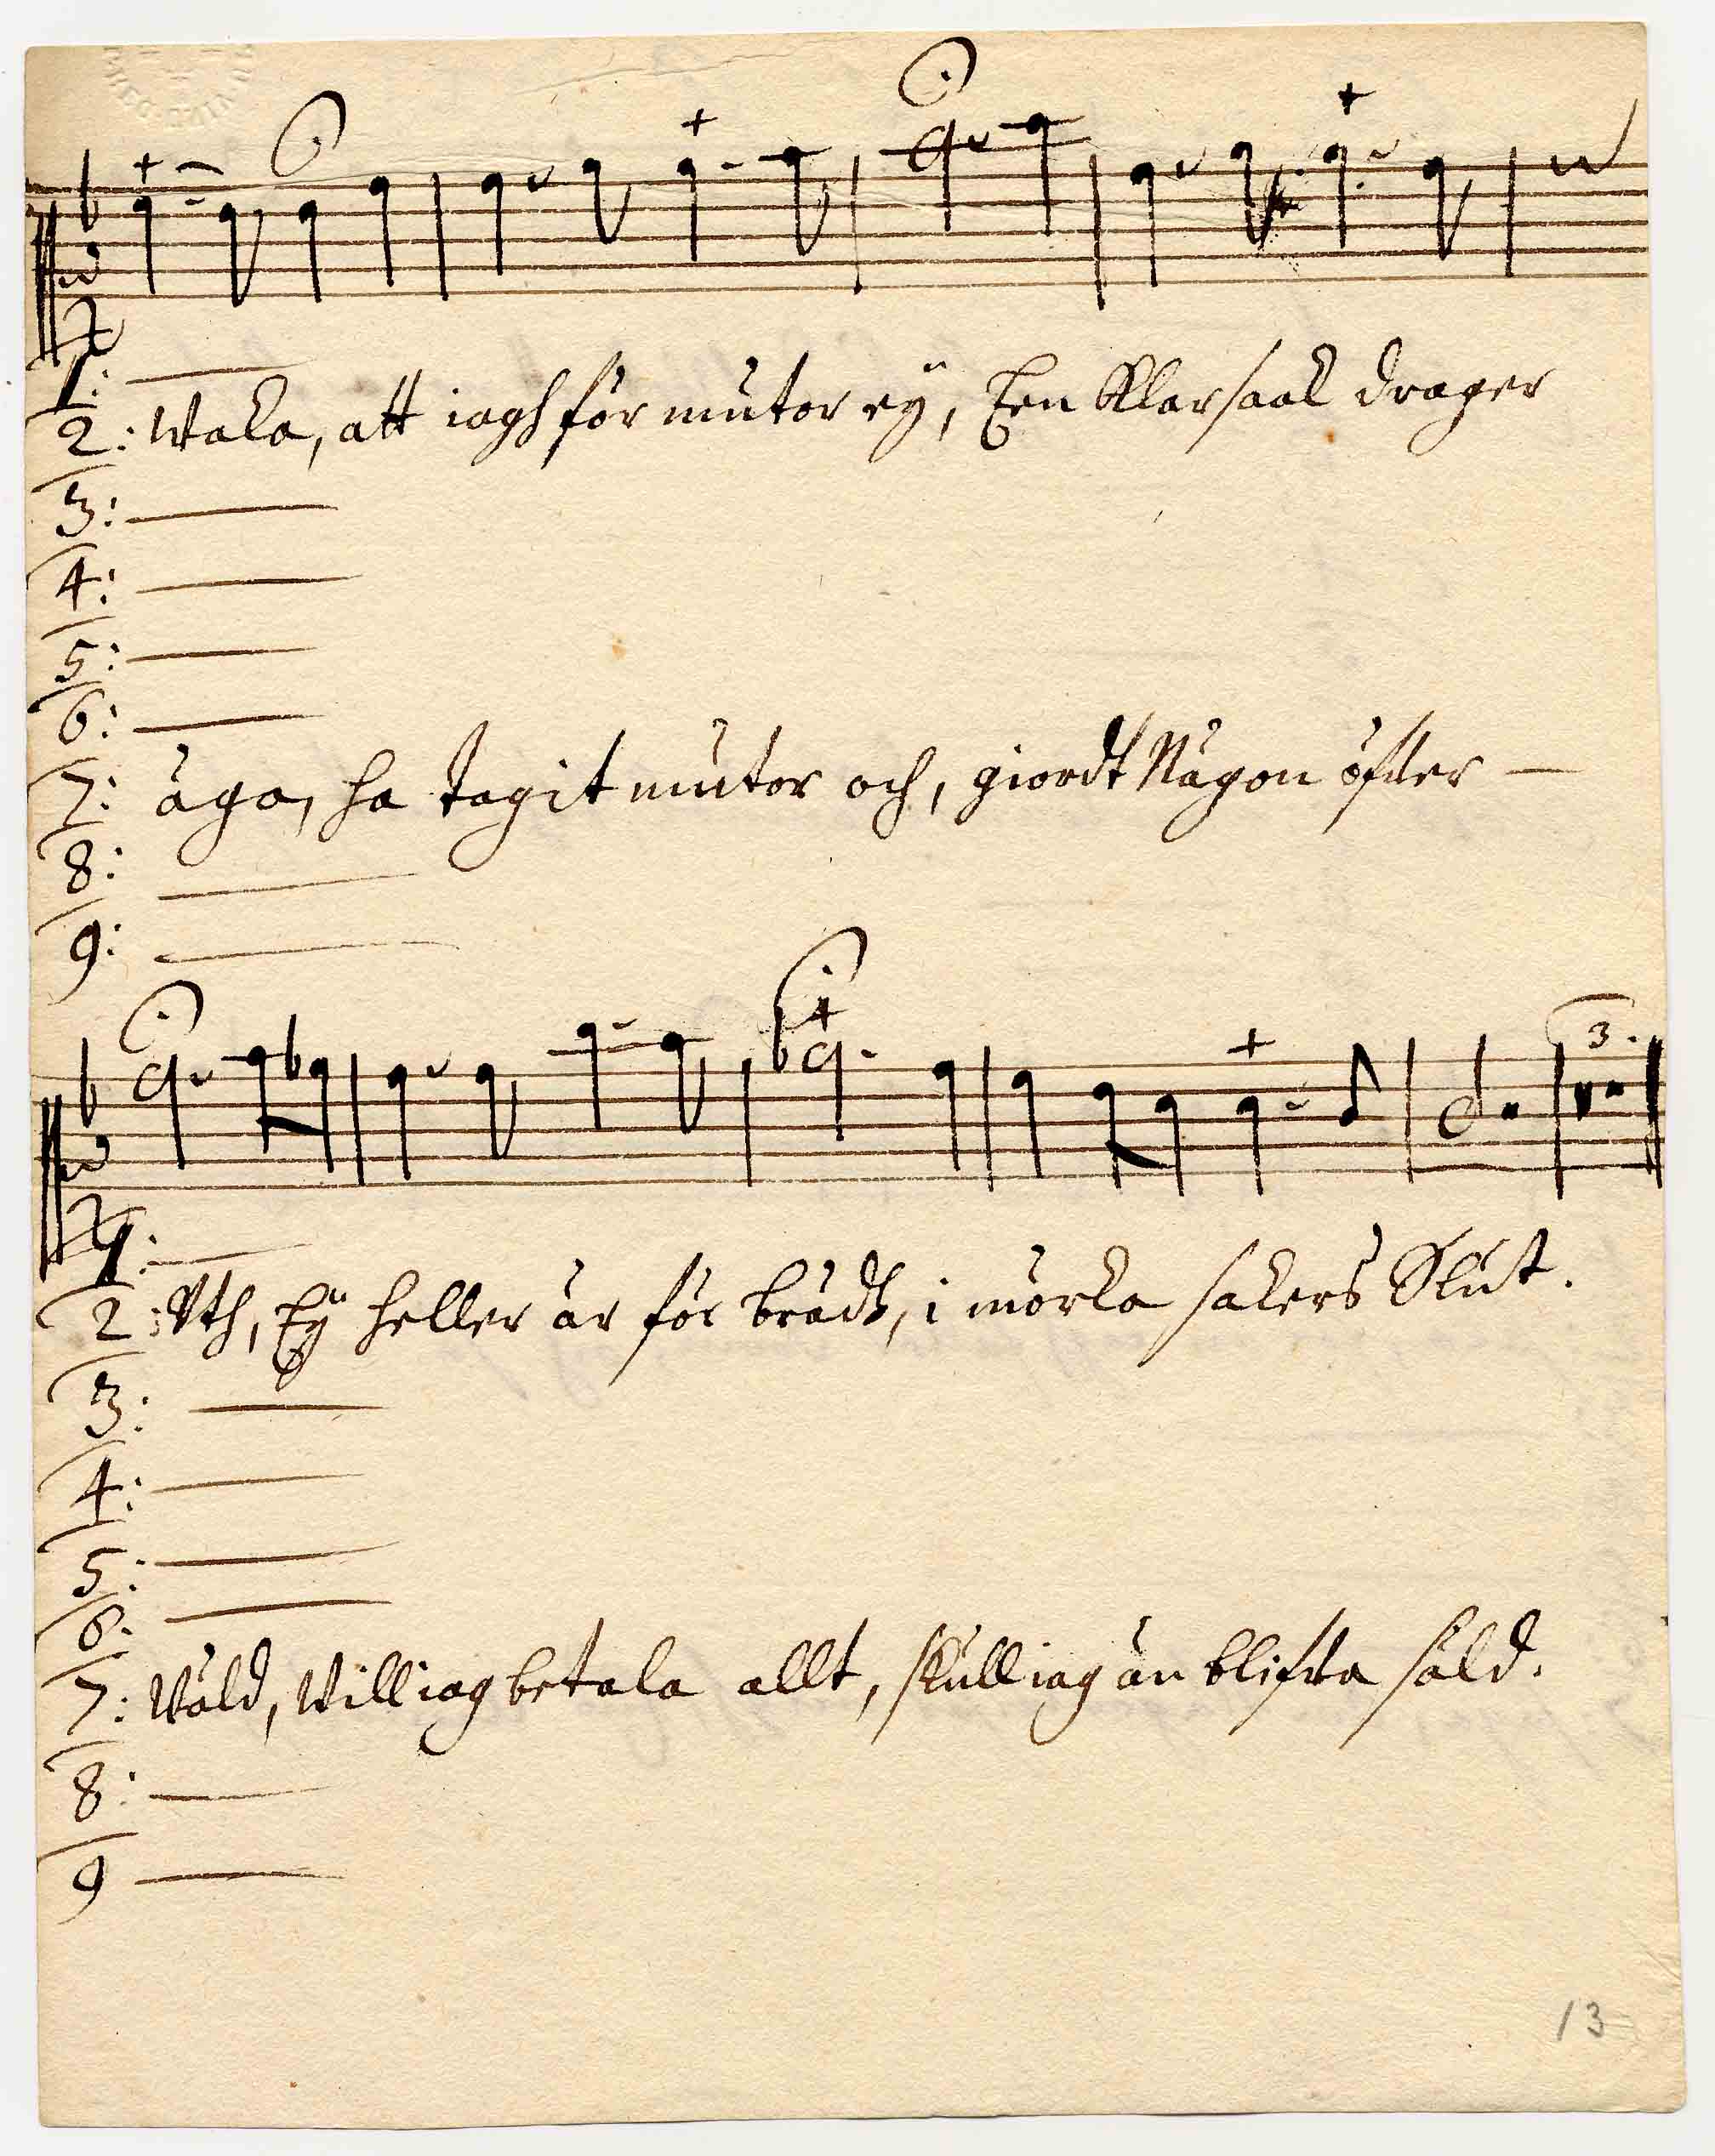 1:
2: Waka, att iagh för mutor eÿ, Een Klar saak drager
3:
4:
5:
6:
7: äga, ha tagit mutor och, giordt Någon öfver —
8:
9:
3.
1:
2: Vth, Eÿ heller är för brådt, i mörka sakers Slut.
3:
4:
5:
6:
7: Wåld, Will iag betala allt, skull iag än blifva såld.
8:
9
13